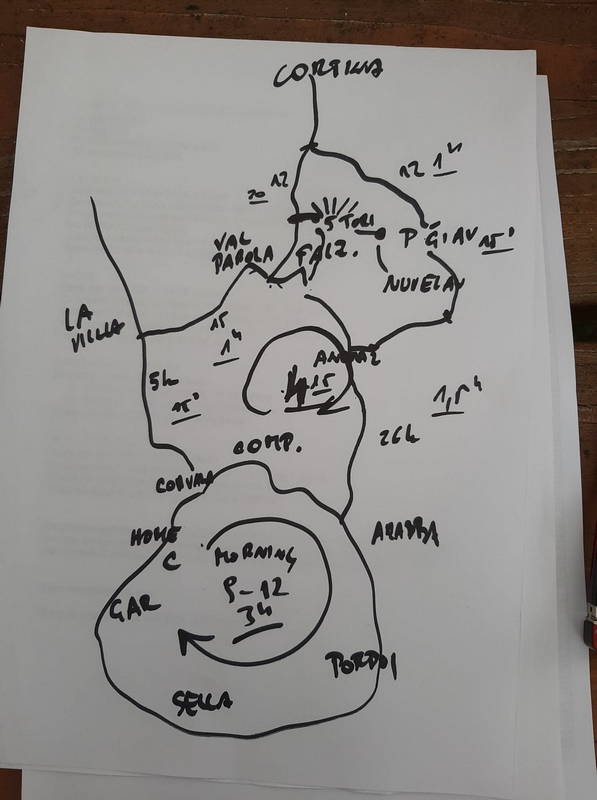 CORTINA
12 1h
20 12
5 TORI
P GIAU 15'
VAL
PAROLA
FALZ.
NUVELAU
LA
VILLA
15
1h
15
5k
15'
1,5h
26k
COMP.
CORVARA
ARABBA
HOME
C
MORNING
9-12
3h
GAR
PORDOI
SELLA